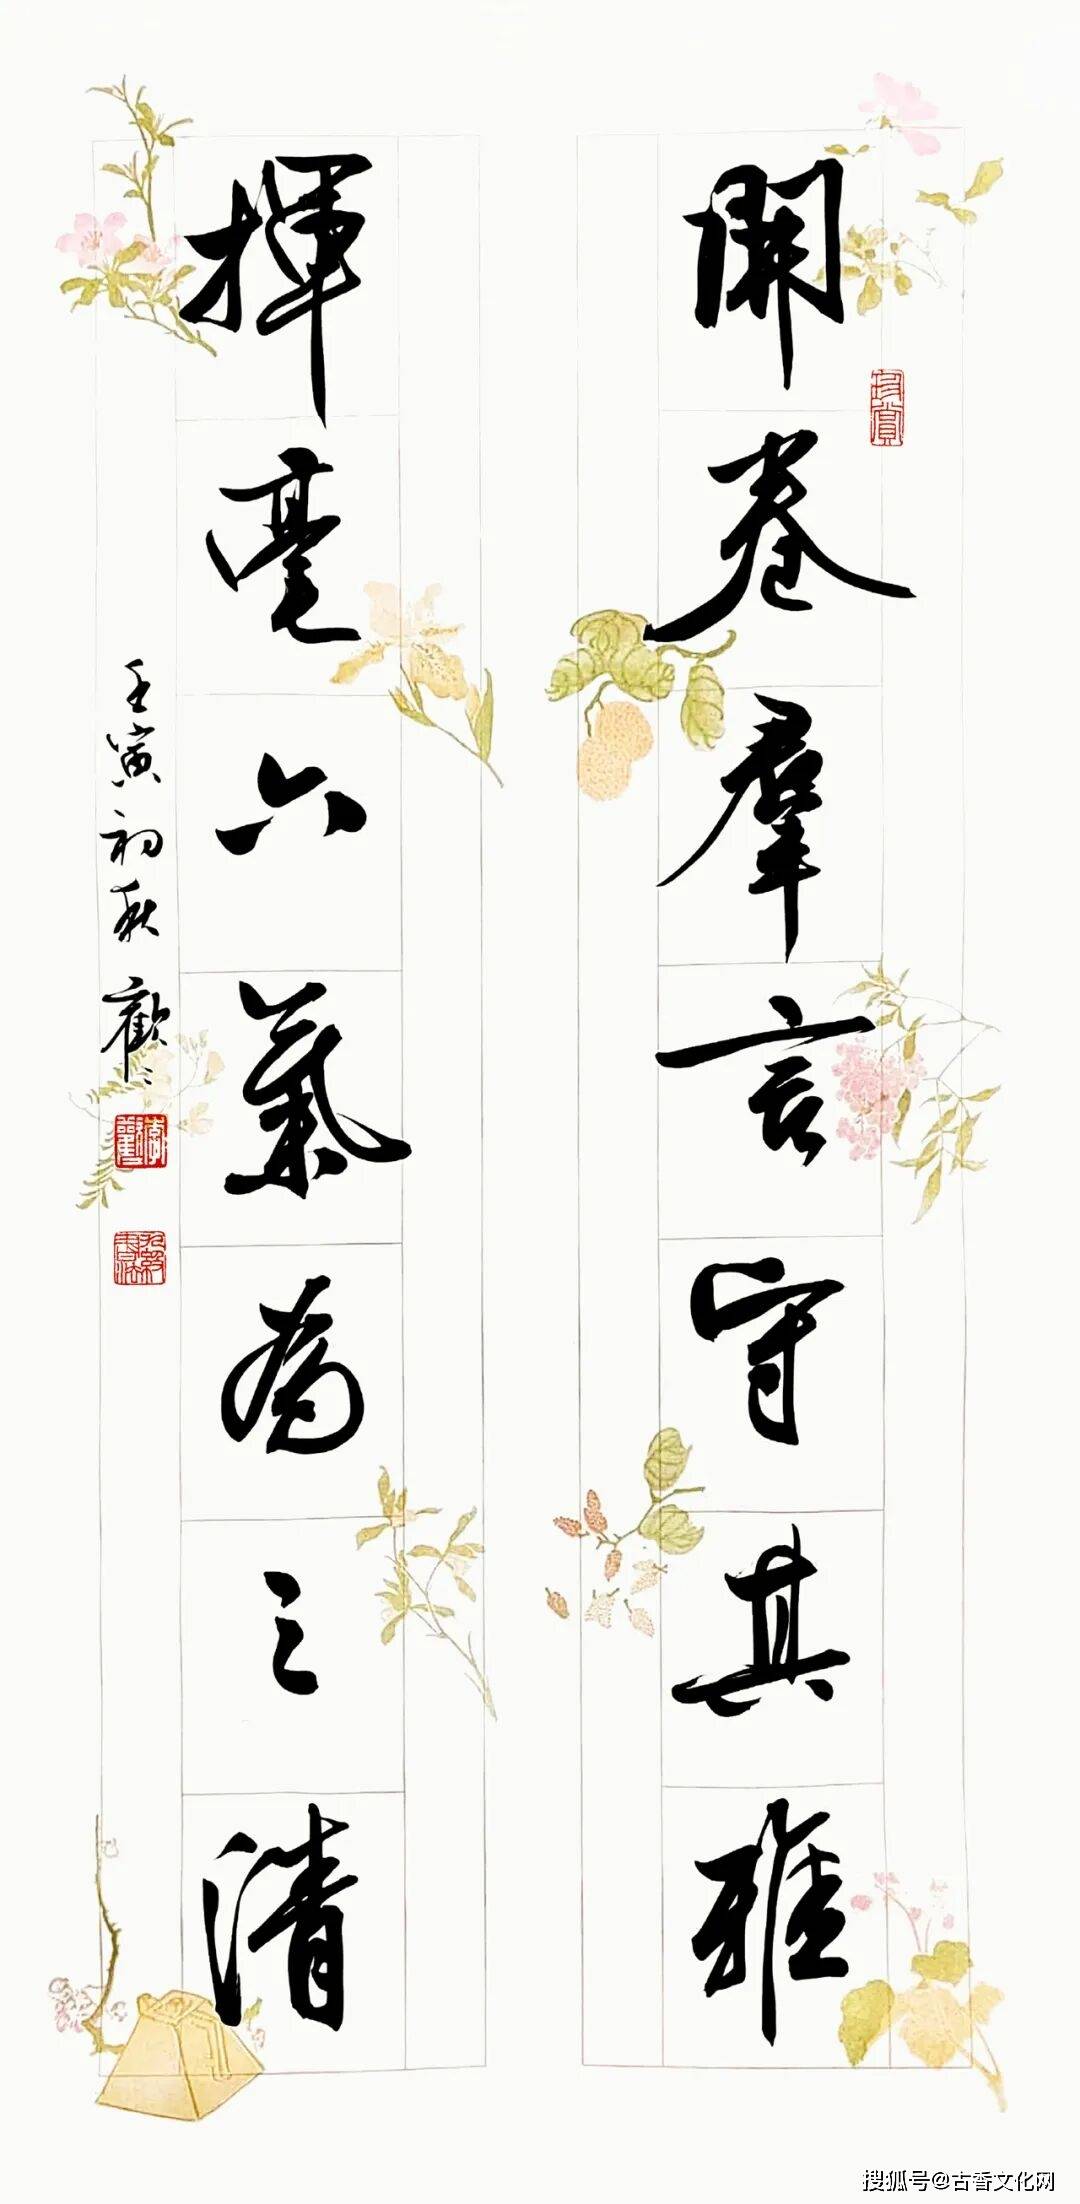 開卷羣言守其雅
揮毫六氣為之清
壬寅初秋 歡
珍賞
搜狐号@古香文化网